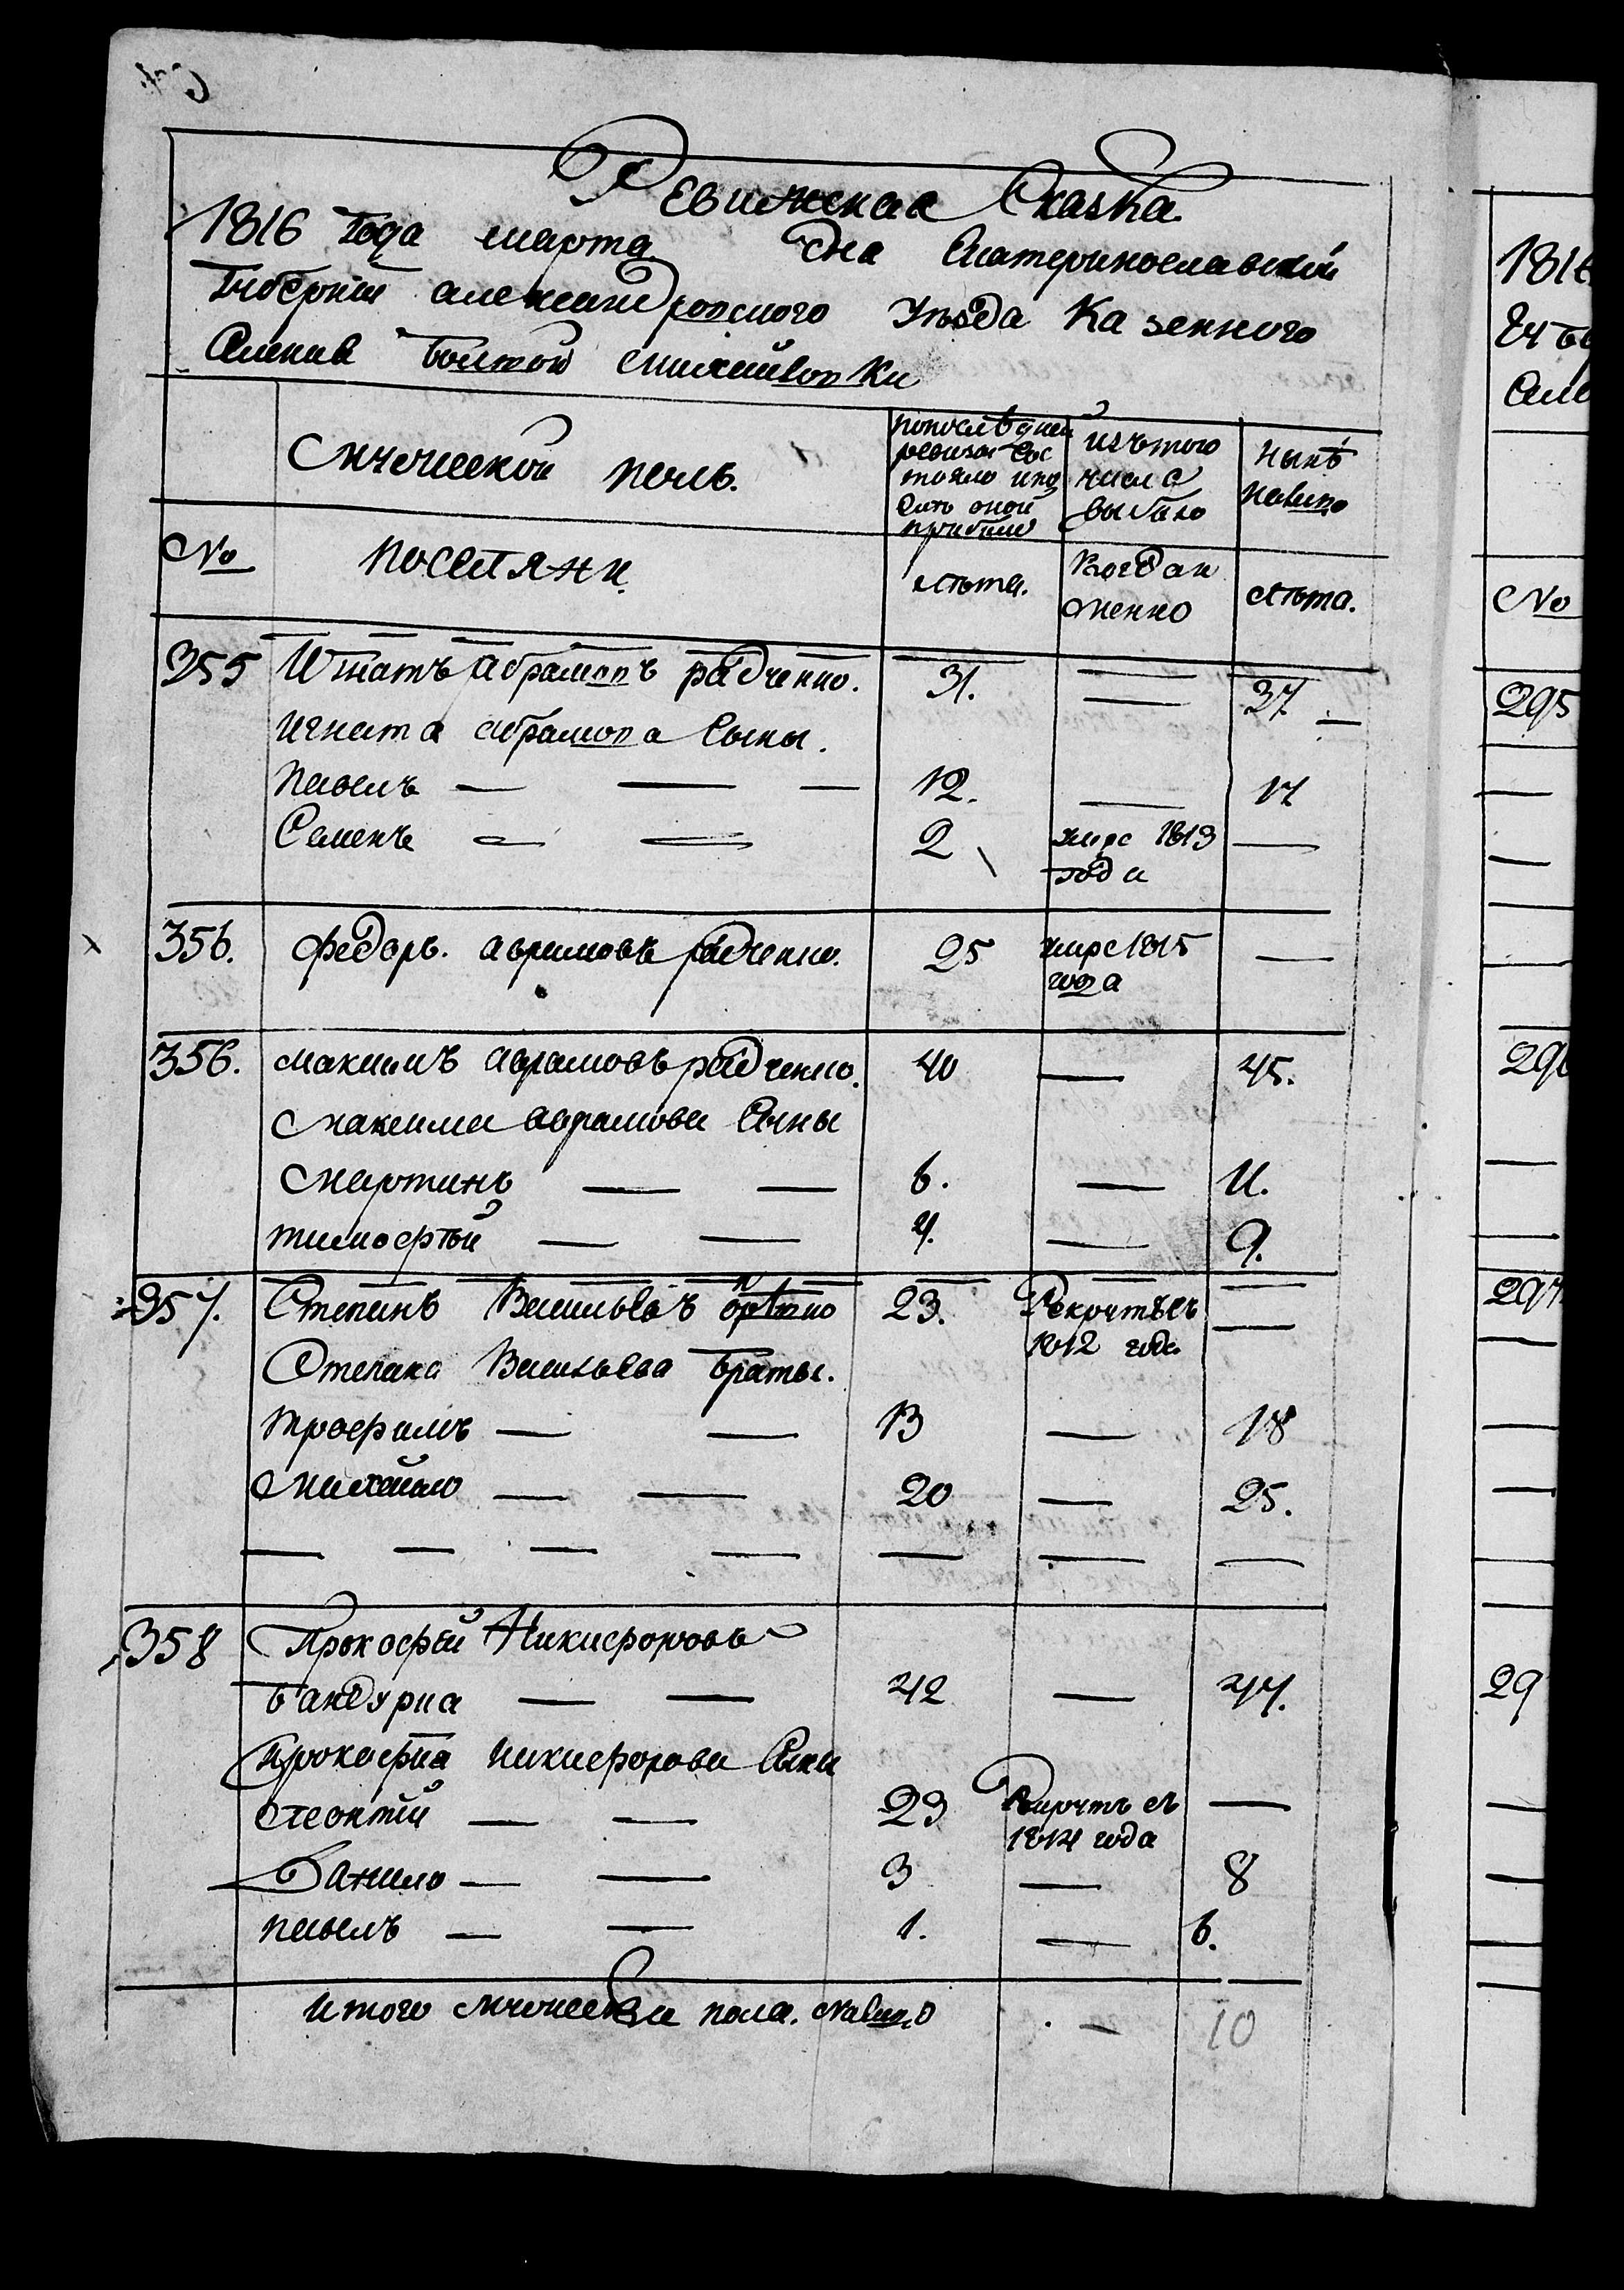 Ревижская Сказка
1816 года марта дня Екатеринославской
Губернии александровского уезда Казенного
Селения Болшой михайловки
Мужеской полъ.
№ поселяни.
по последней ревизіи состояло и после оной прибыло
лѣта.
изъ того числа выбыло
Когда именно
нынѣ налицо
лѣта.
355 Игнатъ абрамовъ радченко. 31. — 37 —
Игната абрамова Сыны.
Павелъ — — — 12. — 17
Семенъ — — 2 умре 1813 года —
356. Федоръ. аврамовъ радченко. 25 умре 1815 года —
356. максимъ аврамовъ радченко. 40 — 45.
максима аврамова Сыны
мартинъ — — 6. — 11.
тимофѣй — — 4. — 9.
357. Степанъ Васильевъ 23. Рекрутъ съ 1812 года —
Степана Васильева братья.
трофимъ — — 13 — 18
михайло — — 20 — 25.
358 Прокофѣй Никифоровъ
бандурка — — 42 — 47.
Прокофия никифорова Сыни
леонтий — — 23 Рекрутъ съ 1814 года —
Данило — — 3 — 8
павелъ — — 1. — 6.
итого мужеска пола. налицо — 10
1816
Сел
№
295
296
297
29